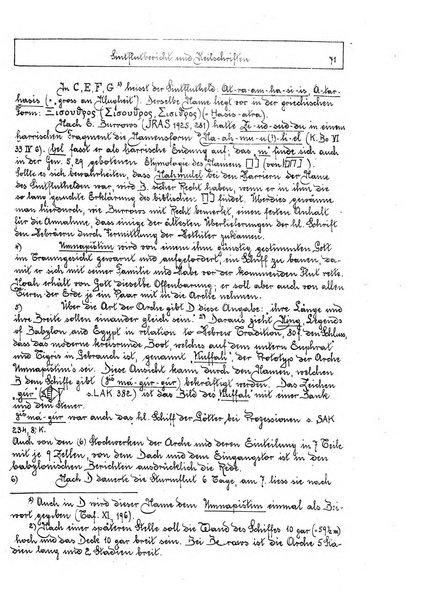 Sintflutbericht und Keilschriften 71
In C, E, F, G ¹) heisst der Sintflutheld At-ra-am-ha-si-is A-tar-
hasis (=„gross an Klugheit"). Derselbe Name liegt vor in der griechischen
Form: Ξισουθρος (Σισουθρος, Σισιθρος) (= Hasis-atra).
Nach E. Burrows (JRAS 1925, 281) hatte Zi-ud-sud-du in einem
harrischen Fragment die Namensform Na-ah-mu-u(!)-li-el (K. Bo VI
33 IV 6). bel fasst er als harrische Endung auf; das „m" finde sich auch
in der Gen. 5,29 gebotenen Etymologie des Namens
Sollte es sich bewahrheiten, dass Nahmulel bei den Harriern der Name
des Sintfluthelden war, wird B. sicher Recht haben, wenn er in ihm die
so lang gesuchte Erklärung des biblischen findet. Überdies gewänne
man hierdurch, wie Burrows mit Recht bemerkt, einen festen Anhalt
für die Annahme, dass einige der ältesten Überlieferungen der hl. Schrift
den Hebräern durch Vermittlung der Hethiter zukamen.
4) Umnapištim wird von einem ihm günstig gestimmten Gott
im Traumgesicht gewarnt und aufgefordert, ein Schiff zu bauen, da-
mit er sich mit seiner Familie und Habe vor der kommenden Flut rette.
Noah erhält von Gott dieselbe Offenbarung; er soll aber auch von allen
Tieren der Erde je ein Paar mit in die Arche nehmen.
5) Über die Art der Arche gibt D diese Angabe: „ihre Länge und
ihre Breite sollen einander gleich sein". ²) Daraus zieht King, Legends
of Babylon and Egypt in relation to Hebrew Tradition, 80f. den Schluss,
dass das moderne kreisrunde Boot, welches auf dem untern Euphrat
und Tigris in Gebrauch ist, genannt „Kuffah", der Prototyp der Arche
Umnapištim's sei. Diese Ansicht kann durch den Namen, welchen
B dem Schiffe gibt (giš má-gúr-gúr) bekräftigt werden. Das Zeichen
„gúr" (s. LAK 382.) ist das Bild des Kuffah mit einer Bank
und dem Steuer.
giš má-gúr war auch das hl. Schiff der Götter bei Prozessionen s. SAK
234, 8; K.
Auch von den (6) Stockwerken der Arche und deren Einteilung in 7 Teile
mit je 9 Zellen, von dem Dach und dem Eingangstor ist in den
babylonischen Berichten ausdrücklich die Rede.
6) Nach D dauerte die Sturmflut 6 Tage, am 7. liess sie nach
¹) Auch in D wird dieser Name dem Umnapištim einmal als Bei-
wort gegeben (Taf. XI, 196).
²) Nach einer späteren Stelle soll die Wand des Schiffes 10 gar (=59½ m)
hoch und das Deck 10 gar breit sein. Bei Berosus ist die Arche 5 Sta-
dien lang und 2 Stadien breit.